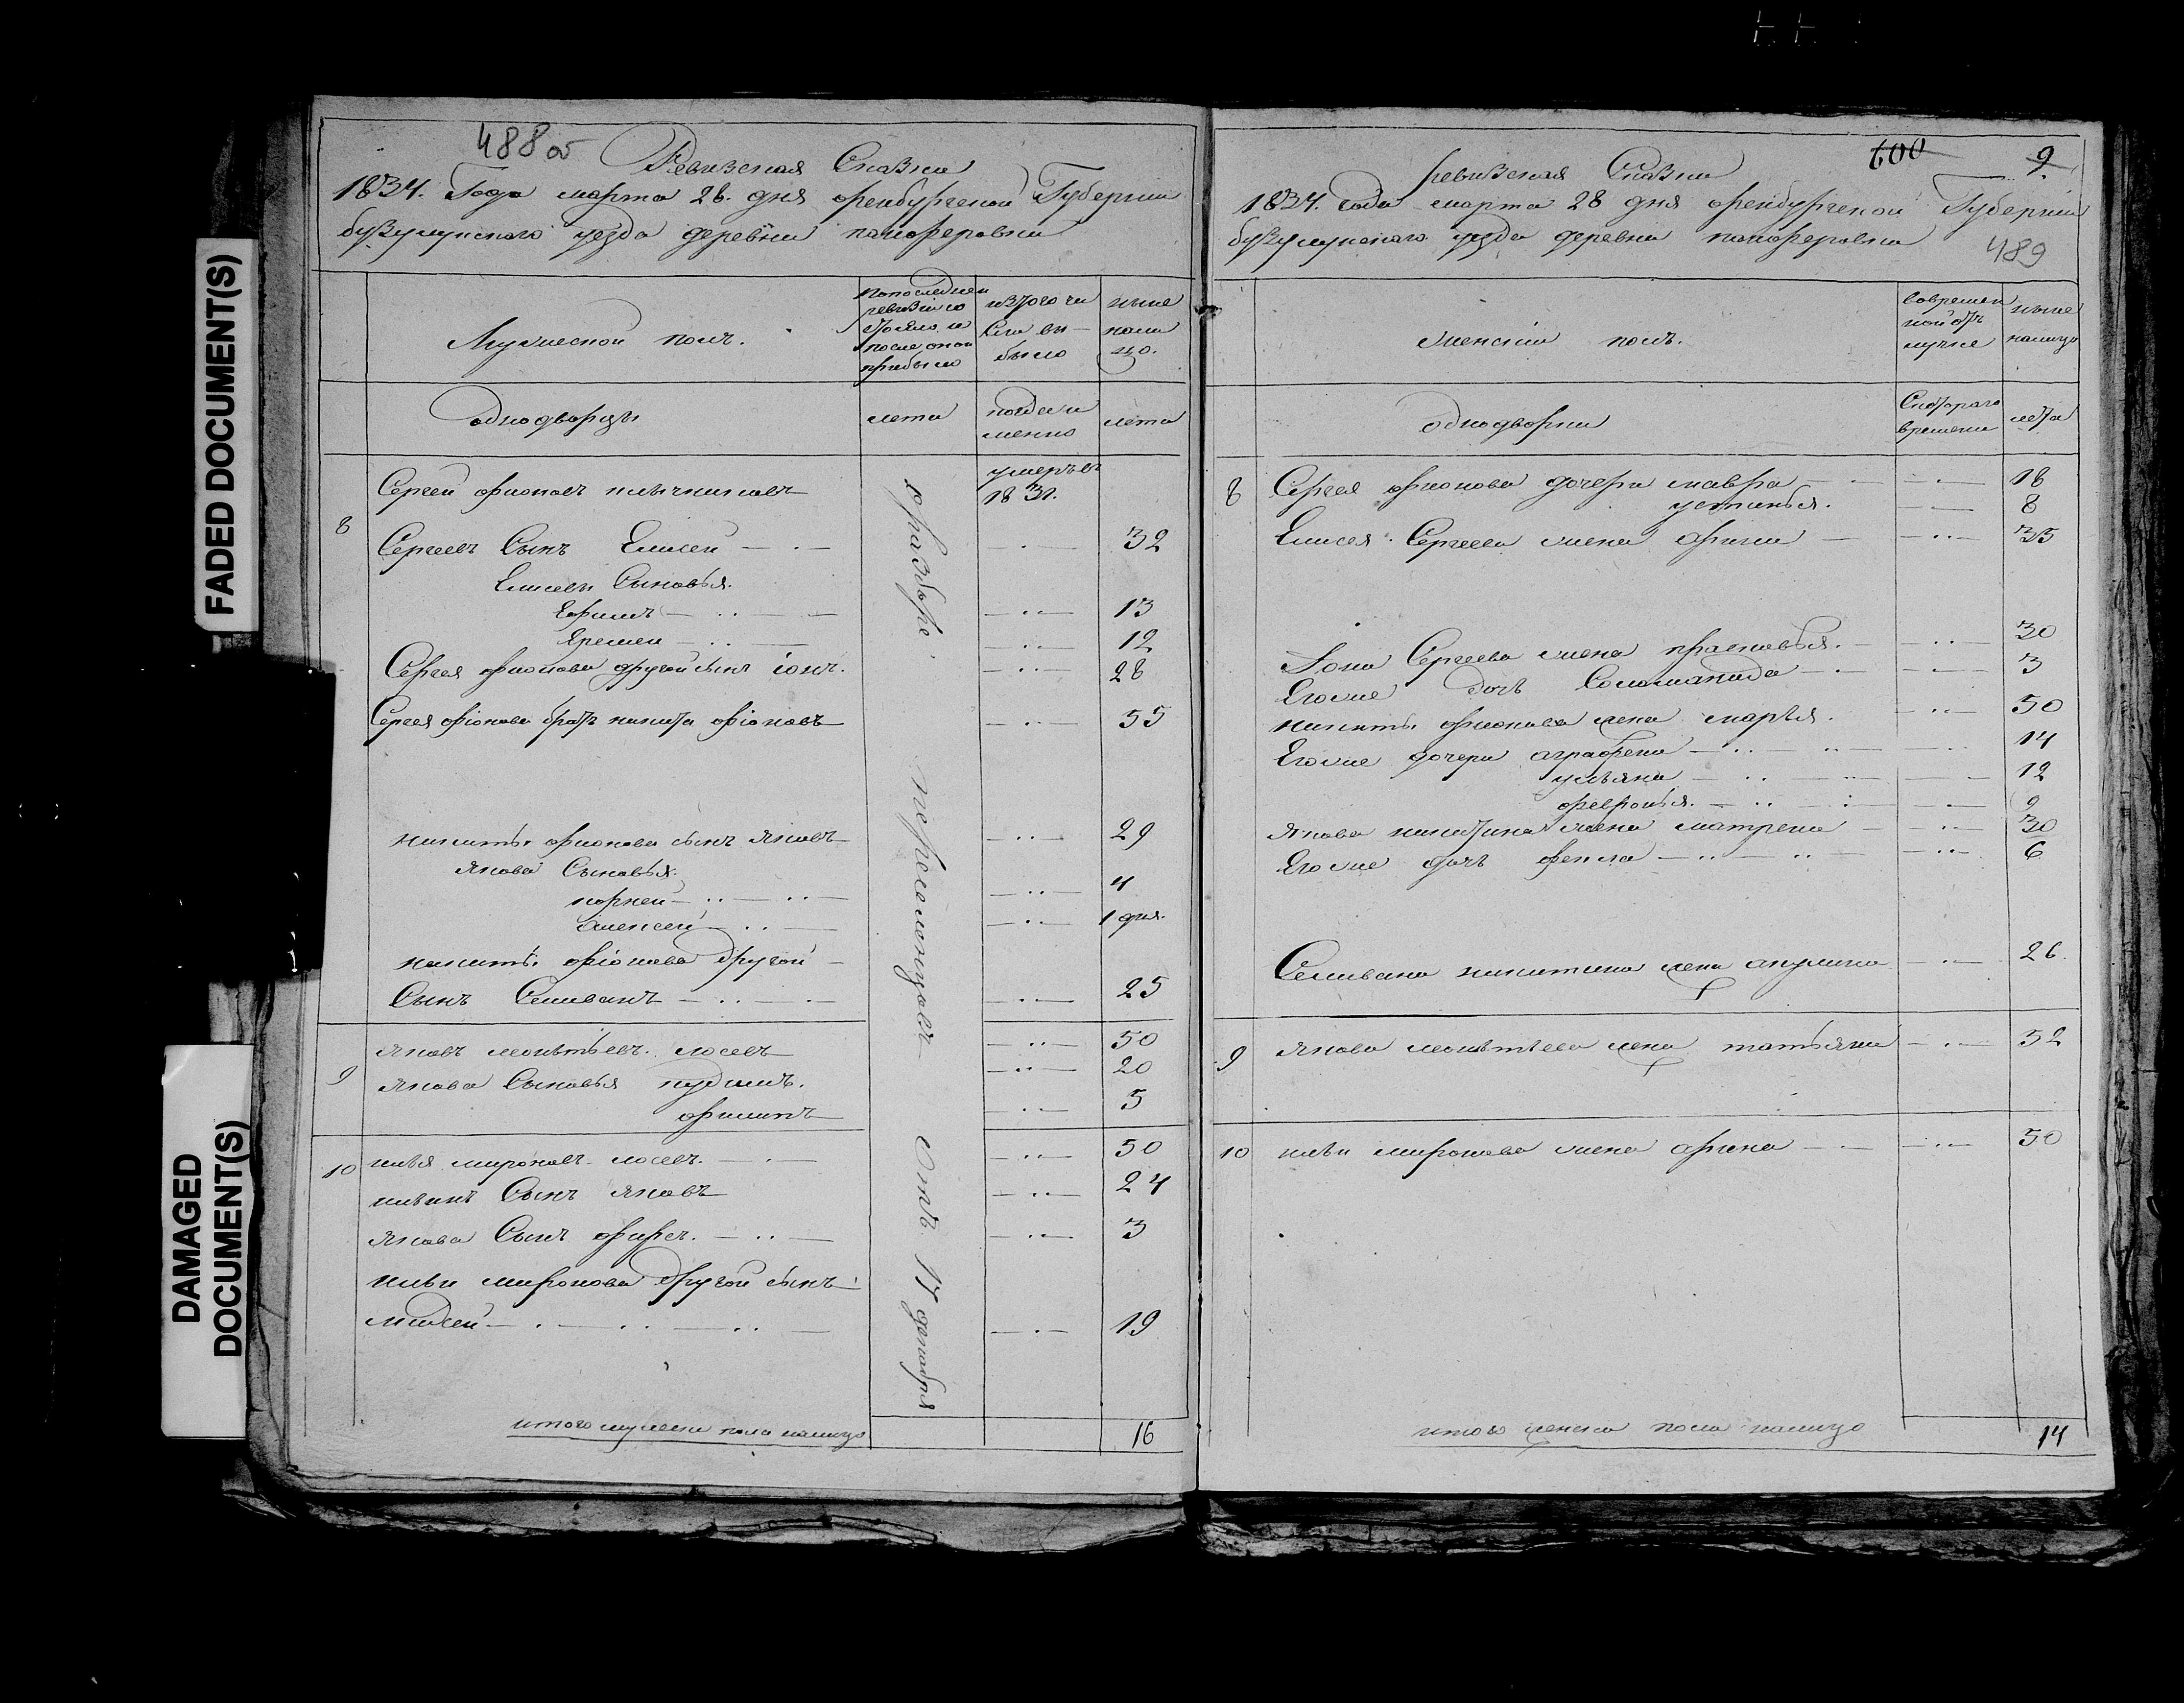 FADED DOCUMENT(S)
DAMAGED
DOCUMENT(S)
488 об
Ревизская Сказка
1834. Года марта 28. дня оренбургской Губернии
бузулукского уезда деревни панферовки
Мужеской полъ.
По последней
ревизіи со
стояло и
после оной
прибыло
изтого чи
сла вы
было
ныне
нали
цо.
однодворцы
лета
когда и
менно
лета
8
Сергей фионовъ
умеръ въ
1831.
Сергеевъ Сынъ Елисей 32
Елисеевы Сыновья.
Ефимъ 13
Еремей 12
Сергея фионова другой сынъ іона. 28
Сергея фіонова братъ никита фіоновъ 55
никиты фионова сынъ Яковъ 29
Якова Сыновья.
корней 4
Алексей 1 дня.
никиты фіонова другой
Сынъ Селиванъ 25
9
Яковъ леонтьевъ. лосевъ 50
Якова Сыновья кузма. 20
филипъ 5
10
илья мироновъ лосевъ. 50
ильинъ Сынъ Яковъ 24
Якова Сынъ фирсъ. 3
ильи миронова другой сынъ
Мосей 19
итого мужеска пола налицо 16
600
9
ревизская Сказка
1834. Года марта 28 дня оренбургской Губерніи
бузулукскаго уезда деревни панферовки
489
женскій полъ.
вовремен
ной от
лучке
ныне
налицо
однодворки
Скотораго
времени
лета
8
Сергея фионова дочери мавра 18
устинья. 8
Елисея Сергеева жена 35
Іона Сергеева жена прасковья. 30
Егоже дочь Соломанида 3
никиты фионова жена марья. 50
Егоже дочери аграфена 14
ульяна 12
февронья. 9
Якова никитина жена матрена 30
Егоже дочь фекла 6
Селивана никитина жена акулина 26.
9
Якова леонтьева жена татьяна 52
10
ильи миронова жена арина 50
итого женска пола налицо 14